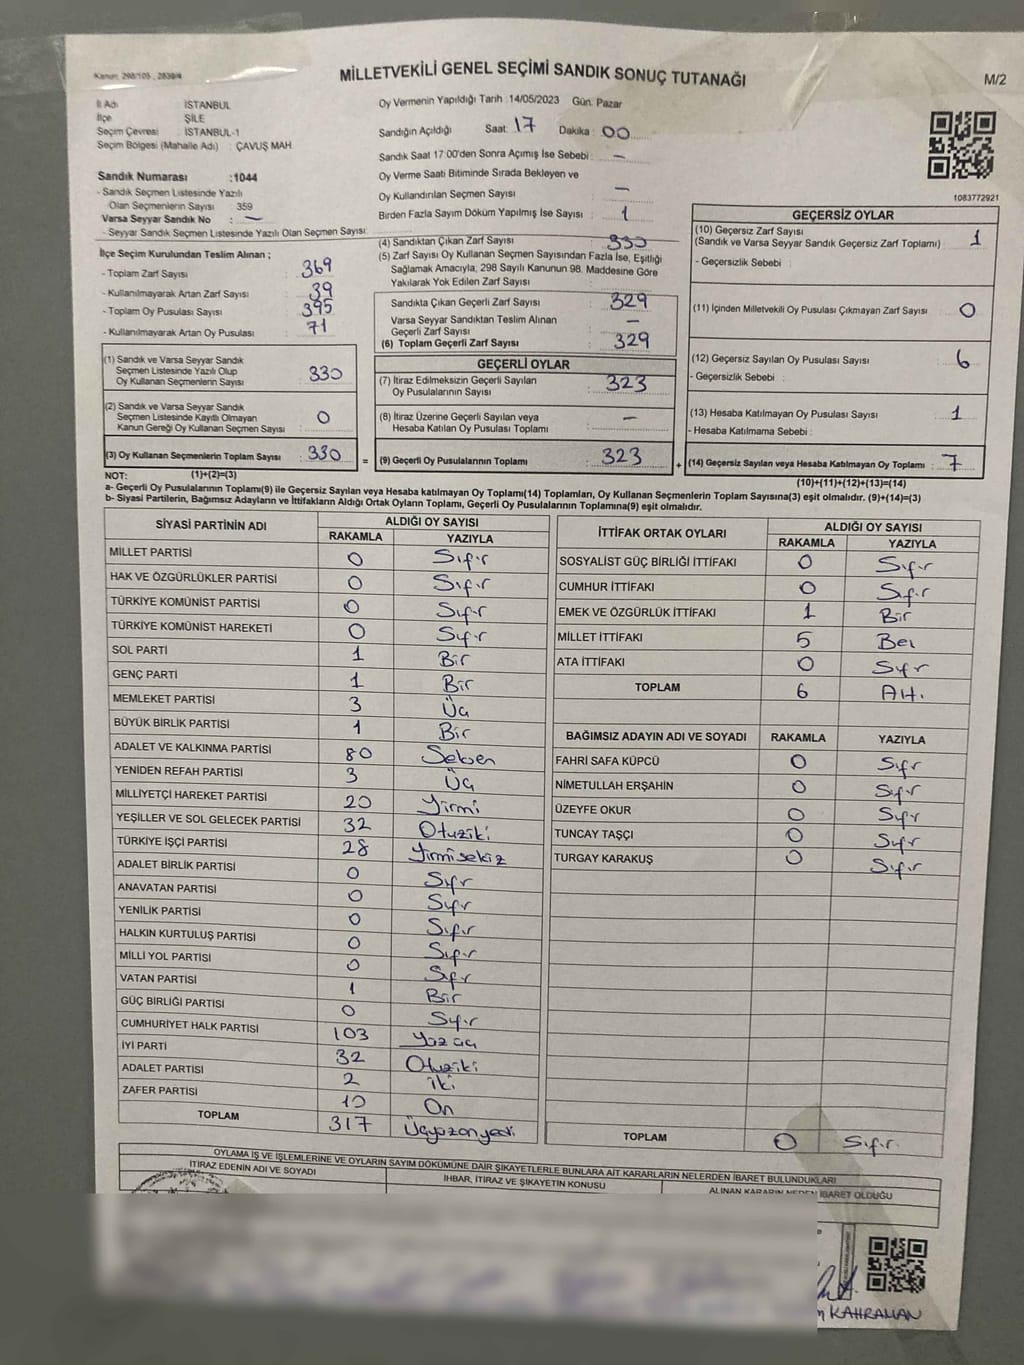 Kanun: 298/105 , 2839/4
MİLLETVEKİLİ GENEL SEÇİMİ SANDIK SONUÇ TUTANAĞI
M/2
İl Adı : İSTANBUL
İlçe : ŞİLE
Seçim Çevresi : İSTANBUL-1
Seçim Bölgesi (Mahalle Adı) : ÇAVUŞ MAH.
Oy Vermenin Yapıldığı Tarih :14/05/2023 Gün: Pazar
Sandığın Açıldığı Saat: 17 Dakika : 00
Sandık Saat 17:00'den Sonra Açımış İse Sebebi : —
Oy Verme Saati Bitiminde Sırada Bekleyen ve
Oy Kullandırılan Seçmen Sayısı —
Birden Fazla Sayım Döküm Yapılmış İse Sayısı : 1
Sandık Numarası :1044
- Sandık Seçmen Listesinde Yazılı
Olan Seçmenlerin Sayısı : 359
Varsa Seyyar Sandık No : —
- Seyyar Sandık Seçmen Listesinde Yazılı Olan Seçmen Sayısı:
1083772921
İlçe Seçim Kurulundan Teslim Alınan ;
- Toplam Zarf Sayısı : 369
- Kullanılmayarak Artan Zarf Sayısı : 39
- Toplam Oy Pusulası Sayısı : 395
- Kullanılmayarak Artan Oy Pusulası : 71
(1) Sandık ve Varsa Seyyar Sandık
Seçmen Listesinde Yazılı Olup
Oy Kullanan Seçmenlerin Sayısı : 330
(2) Sandık ve Varsa Seyyar Sandık
Seçmen Listesinde Kayıtlı Olmayan
Kanun Gereği Oy Kullanan Seçmen Sayısı : 0
(3) Oy Kullanan Seçmenlerin Toplam Sayısı : 330
(4) Sandıktan Çıkan Zarf Sayısı : 330
(5) Zarf Sayısı Oy Kullanan Seçmen Sayısından Fazla İse, Eşitliği
Sağlamak Amacıyla, 298 Sayılı Kanunun 98. Maddesine Göre
Yakılarak Yok Edilen Zarf Sayısı :
Sandıkta Çıkan Geçerli Zarf Sayısı : 329
Varsa Seyyar Sandıktan Teslim Alınan
Geçerli Zarf Sayısı : —
(6) Toplam Geçerli Zarf Sayısı : 329
GEÇERLİ OYLAR
(7) İtiraz Edilmeksizin Geçerli Sayılan
Oy Pusulalarının Sayısı : 323
(8) İtiraz Üzerine Geçerli Sayılan veya
Hesaba Katılan Oy Pusulası Toplamı : —
= (9) Geçerli Oy Pusulalarının Toplamı : 323
GEÇERSİZ OYLAR
(10) Geçersiz Zarf Sayısı
(Sandık ve Varsa Seyyar Sandık Geçersiz Zarf Toplamı) : 1
- Geçersizlik Sebebi :
(11) İçinden Milletvekili Oy Pusulası Çıkmayan Zarf Sayısı : 0
(12) Geçersiz Sayılan Oy Pusulası Sayısı : 6
- Geçersizlik Sebebi :
(13) Hesaba Katılmayan Oy Pusulası Sayısı : 1
- Hesaba Katılmama Sebebi :
+ (14) Geçersiz Sayılan veya Hesaba Katılmayan Oy Toplamı : 7
NOT: (1)+(2)=(3)
(10)+(11)+(12)+(13)=(14)
a- Geçerli Oy Pusulalarının Toplamı(9) ile Geçersiz Sayılan veya Hesaba katılmayan Oy Toplamı(14) Toplamları, Oy Kullanan Seçmenlerin Toplam Sayısına(3) eşit olmalıdır. (9)+(14)=(3)
b- Siyasi Partilerin, Bağımsız Adayların ve İttifakların Aldığı Ortak Oyların Toplamı, Geçerli Oy Pusulalarının Toplamına(9) eşit olmalıdır.
SİYASİ PARTİNİN ADI ALDIĞI OY SAYISI
RAKAMLA YAZIYLA
MİLLET PARTİSİ 0 Sıfır
HAK VE ÖZGÜRLÜKLER PARTİSİ 0 Sıfır
TÜRKİYE KOMÜNİST PARTİSİ 0 Sıfır
TÜRKİYE KOMÜNİST HAREKETİ 0 Sıfır
SOL PARTİ 1 Bir
GENÇ PARTİ 1 Bir
MEMLEKET PARTİSİ 3 Üç
BÜYÜK BİRLİK PARTİSİ 1 Bir
ADALET VE KALKINMA PARTİSİ 80 Seksen
YENİDEN REFAH PARTİSİ 3 Üç
MİLLİYETÇİ HAREKET PARTİSİ 20 Yirmi
YEŞİLLER VE SOL GELECEK PARTİSİ 32 Otuziki
TÜRKİYE İŞÇİ PARTİSİ 28 Yirmisekiz
ADALET BİRLİK PARTİSİ 0 Sıfır
ANAVATAN PARTİSİ 0 Sıfır
YENİLİK PARTİSİ 0 Sıfır
HALKIN KURTULUŞ PARTİSİ 0 Sıfır
MİLLİ YOL PARTİSİ 0 Sıfır
VATAN PARTİSİ 1 Bir
GÜÇ BİRLİĞİ PARTİSİ 0 Sıfır
CUMHURİYET HALK PARTİSİ 103 Yüzüç
İYİ PARTİ 32 Otuziki
ADALET PARTİSİ 2 İki
ZAFER PARTİSİ 10 On
TOPLAM 317 Üçyüzonyedi
İTTİFAK ORTAK OYLARI ALDIĞI OY SAYISI
RAKAMLA YAZIYLA
SOSYALİST GÜÇ BİRLİĞİ İTTİFAKI 0 Sıfır
CUMHUR İTTİFAKI 0 Sıfır
EMEK VE ÖZGÜRLÜK İTTİFAKI 1 Bir
MİLLET İTTİFAKI 5 Beş
ATA İTTİFAKI 0 Sıfır
TOPLAM 6 Altı
BAĞIMSIZ ADAYIN ADI VE SOYADI RAKAMLA YAZIYLA
FAHRİ SAFA KÜPCÜ 0 Sıfır
NİMETULLAH ERŞAHİN 0 Sıfır
ÜZEYFE OKUR 0 Sıfır
TUNCAY TAŞÇI 0 Sıfır
TURGAY KARAKUŞ 0 Sıfır
TOPLAM 0 Sıfır
OYLAMA İŞ VE İŞLEMLERİNE VE OYLARIN SAYIM DÖKÜMÜNE DAİR ŞİKAYETLERLE BUNLARA AİT KARARLARIN NELERDEN İBARET BULUNDUKLARI
İTİRAZ EDENİN ADI VE SOYADI İHBAR, İTİRAZ VE ŞİKAYETİN KONUSU ALINAN KARARIN NEDEN İBARET OLDUĞU
KAHRAMAN